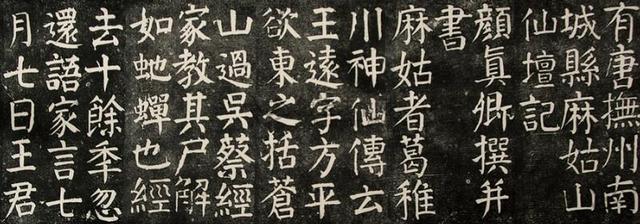 有唐撫州南
城縣麻姑山
仙壇記
顏真卿撰并
書
麻姑者葛稚
川神仙傳云
王遠字方平
欲東之括蒼
山過吳蔡經
家教其尸解
如虵蟬也經
去十餘秊忽
還語家言七
月七日王君